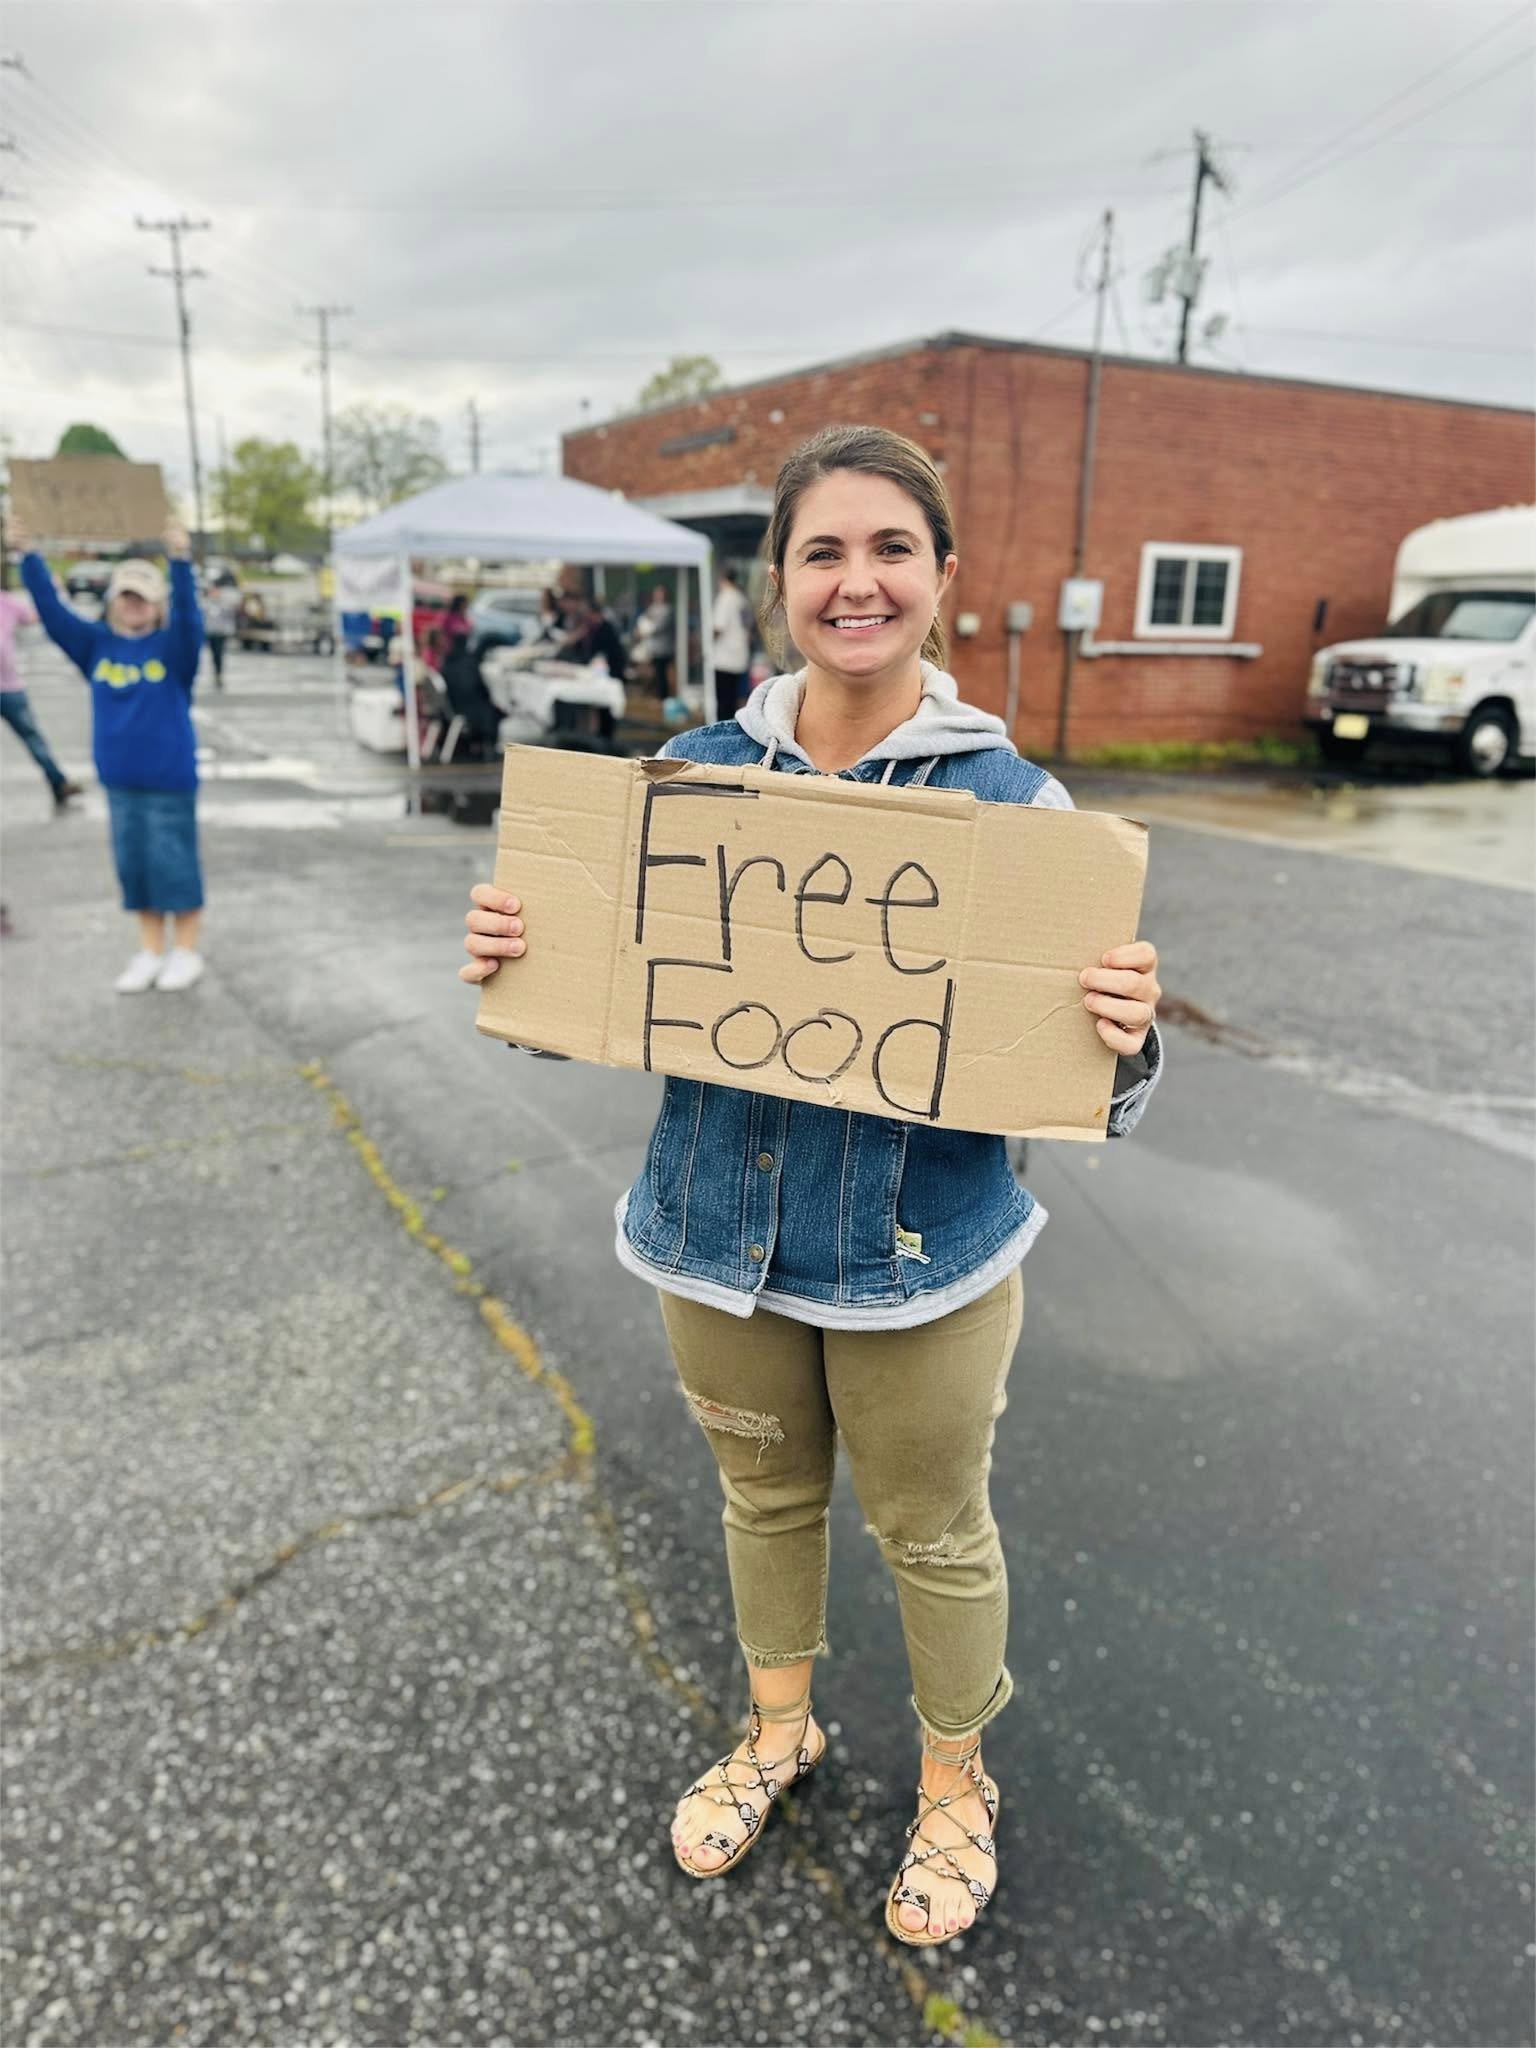 Free
Food